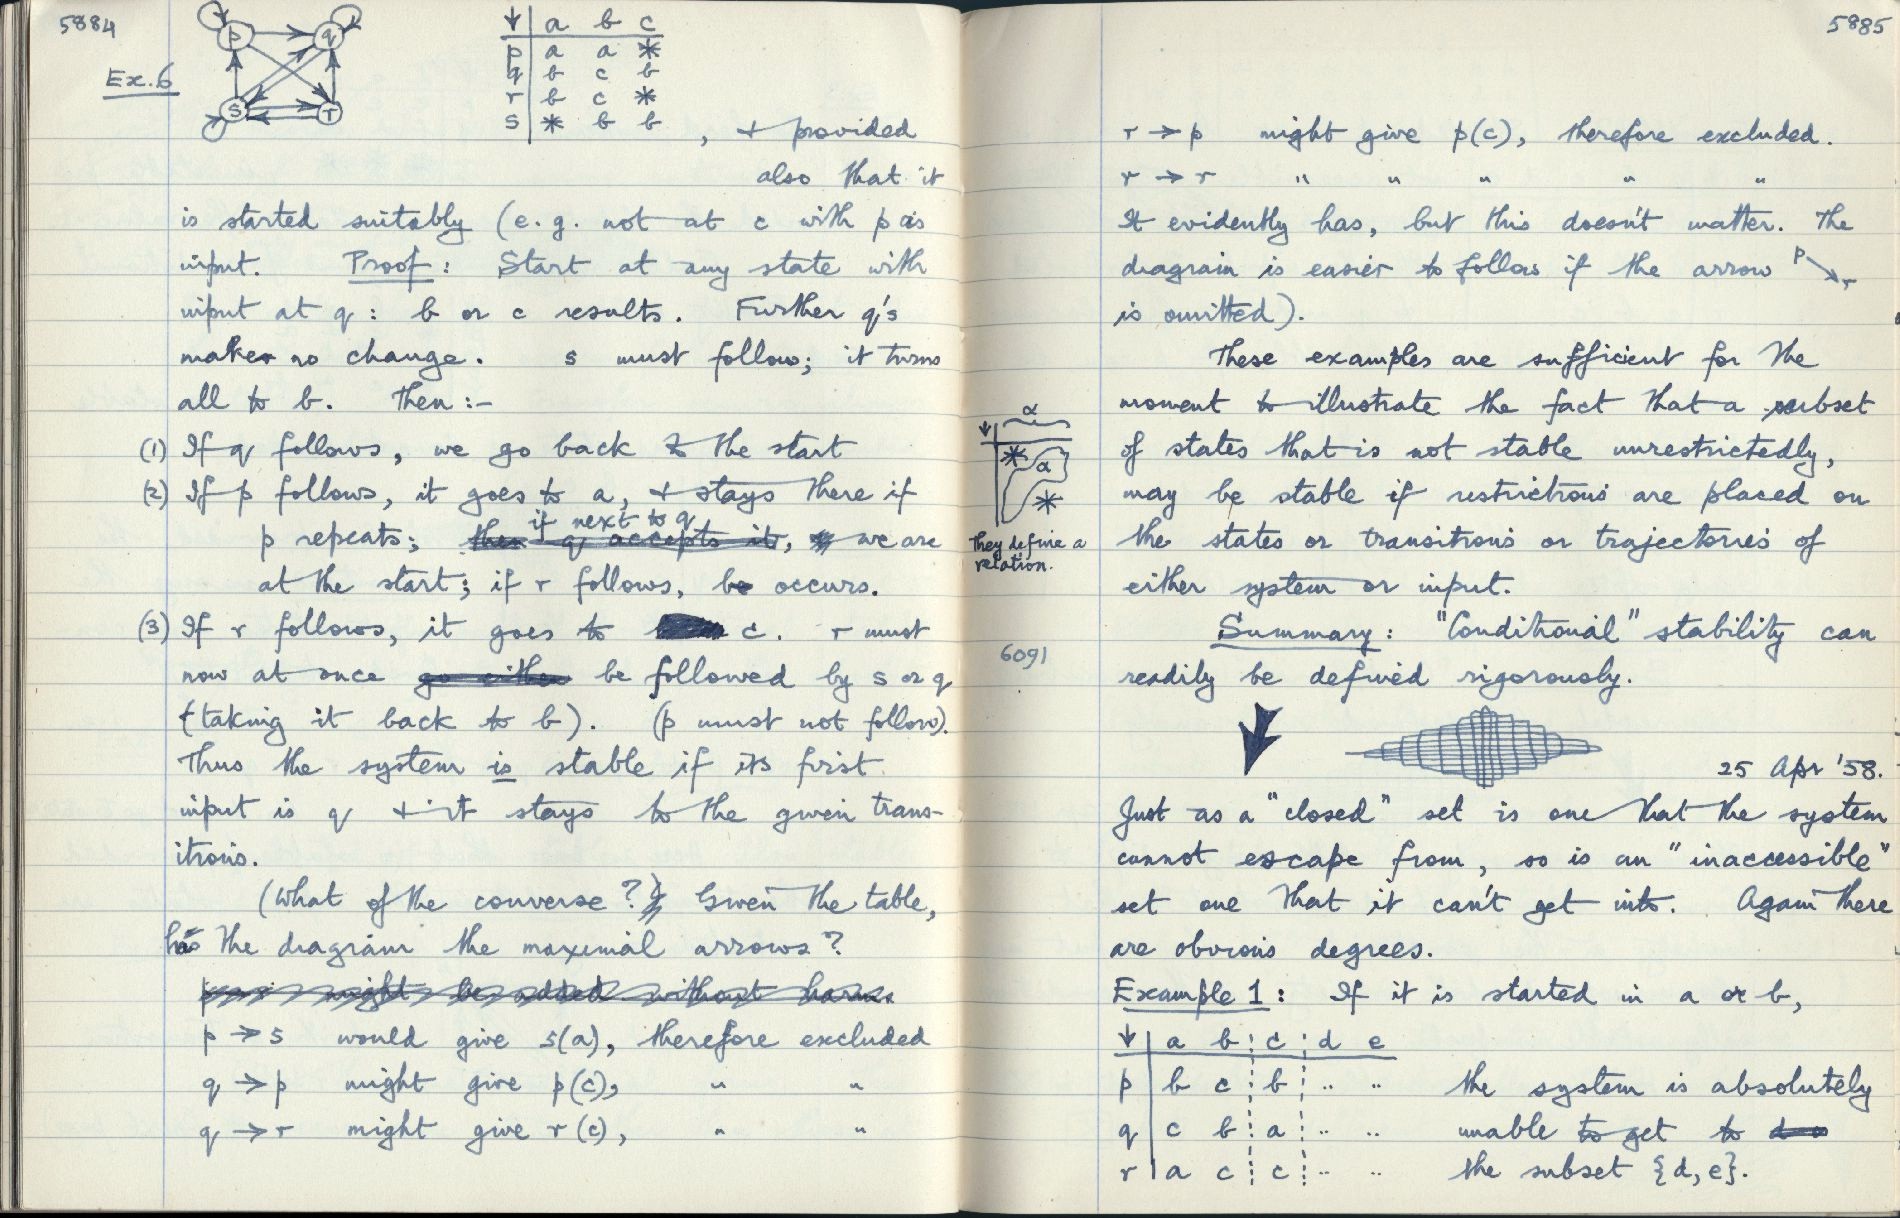 5884
p q
s r
Ex. 6
↓ a b c
p a a *
q b c b
r b c *
s * b b
, + provided
also that it
is started suitably (e.g. not at c with p as
input. Proof: Start at any state with
input at q: b or c results. Further q's
makes no change. s must follow; it turns
all to b. Then :-
(1) If q follows, we go back to the start
(2) If p follows, it goes to a, + stays there if
if next to q
p repeats; then q accepts it, we are
at the start; if r follows, b occurs.
(3) If r follows, it goes to c. r must
now at once go either be followed by s or q
(taking it back to b). (p must not follow).
Thus the system is stable if its first
input is q + it stays to the given trans-
itions.
(What of the converse? Given the table,
has the diagram the maximal arrows?
might be added without harm.
p → s would give s(a), therefore excluded
q → p might give p(c), " "
q → r might give r(c), " "
5885
r → p might give p(c), therefore excluded.
r → r " " " " "
It evidently has, but this doesn't matter. The
diagram is easier to follow if the arrow p → r
is omitted).
These examples are sufficient for the
moment to illustrate the fact that a subset
of states that is not stable unrestrictedly,
may be stable if restrictions are placed on
the states or transitions or trajectories of
either system or input.
↓ α
* α
*
They define a
relation.
Summary: "Conditional" stability can
readily be defined rigorously.
6091
25 Apr '58.
Just as a "closed" set is one that the system
cannot escape from, so is an "inaccessible"
set one that it can't get into. Again there
are obvious degrees.
Example 1: If it is started in a or b,
↓ a b c d e
p b c b .. .. the system is absolutely
q c b a .. .. unable to get to
r a c c .. .. the subset {d, e}.